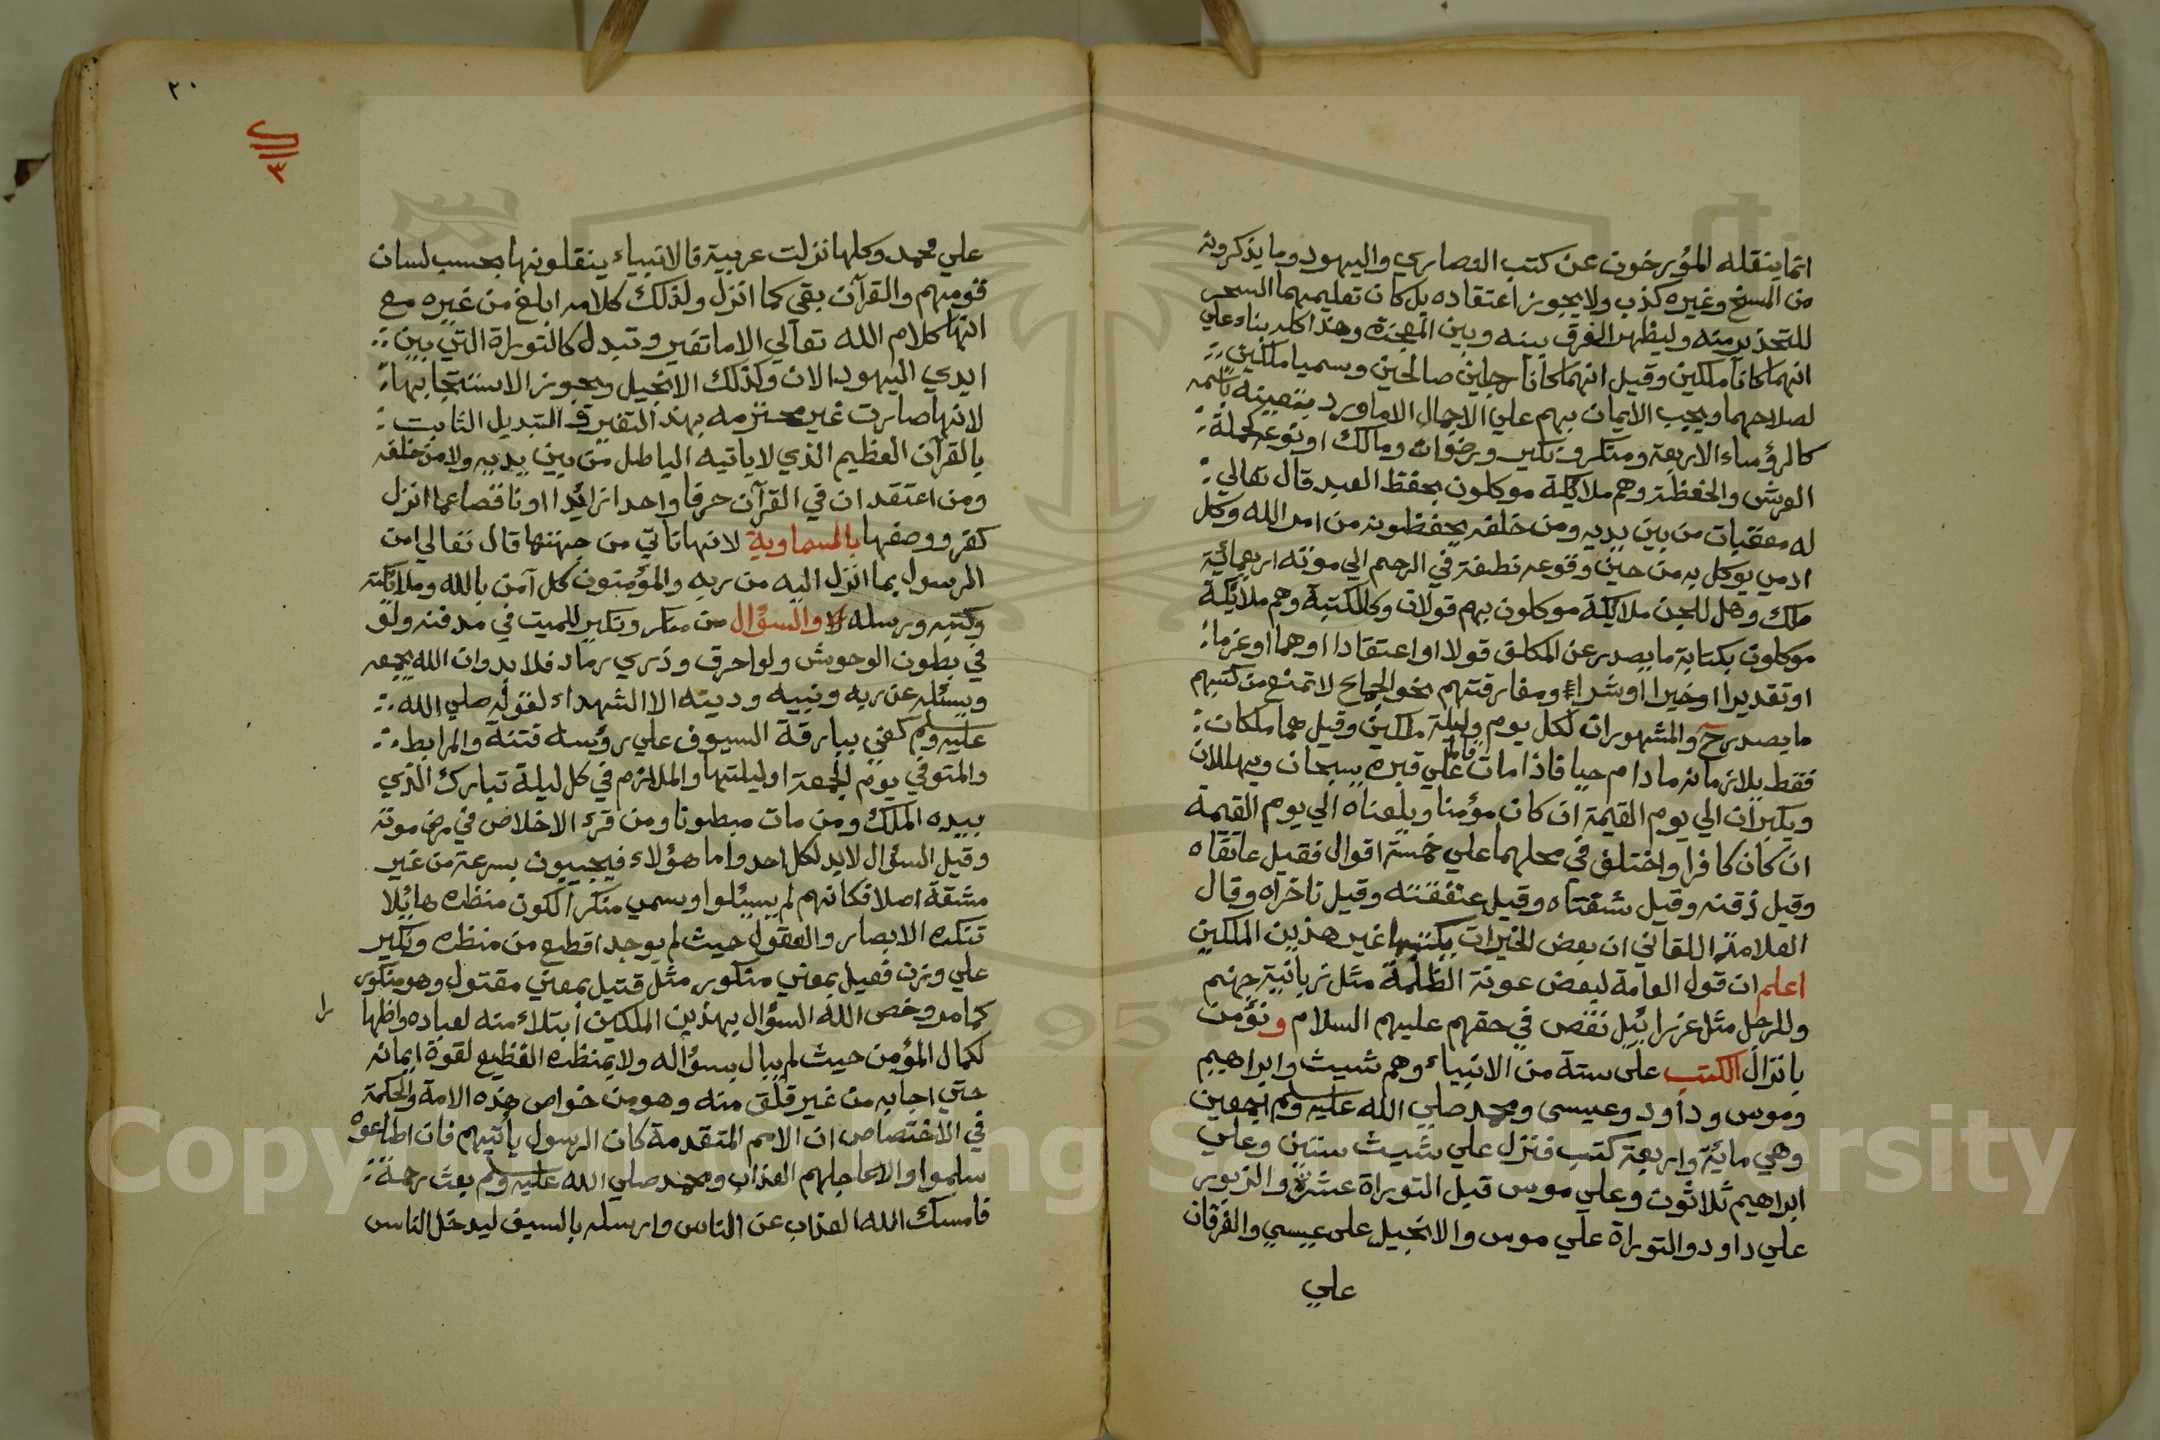 انما ينقله المؤرخون عن كتب النصاري واليهود وما يذكرونه
من المسخ وغيره كذب ولا يجوز اعتقاده بل كان تعليمهما السحر
للتحذير منه وليظهر الفرق بينه وبين المعجزة وهذا كله بناء علي
انهما كانا ملكين وقيل انهما كانا رجلين صالحين وسميا ملكين
لصلاحهما ويجب الايمان بهم علي الاجمال الا ما ورد بتعيينه باسمه
كالرؤساء الاربعة ومنكر ونكير ورضوان ومالك او نوعه كحملة
العرش والحفظة وهم ملائكة موكلون بحفظ العبد قال تعالي
له معقبات من بين يديه ومن خلفه يحفظونه من امر الله وكل
ادمي يوكل به من حين وقوعه نطفة في الرحم الي موته اربعمائة
ملك وهل للجن ملائكة موكلون بهم قولان وكالكتبة وهم ملائكة
موكلون بكتابة ما يصدر عن المكلف قولا او اعتقادا او هما او عزما
او تقديرا او خيرا او شرا ومفارقتهم نحو الجماع لا تمنع من كتبهم
ما يصدر ح والمشهور ان لكل يوم وليلة ملكين وقيل هما ملكان
فقط يلازمانه ما دام حيا فاذا مات قاما علي قبره يسبحان ويهللان
ويكبران الي يوم القيمة ان كان مؤمنا ويلعناه الي يوم القيمة
ان كان كافرا واختلف في محلهما علي خمسة اقوال فقيل عاتقاه
وقيل ذقنه وقيل شفتاه وقيل عنفقته وقيل ناخراه وقال
العلامة اللقاني ان بعض الخيرات يكتبها غير هذين الملكين
اعلم ان قول العامة لبعض عونة الظلمة مثل زبانية جهنم
وللرجل مثل عزرائيل نقص في حقهم عليهم السلام ونؤمن
بانزال الكتب على ستة من الانبياء وهم شيث وابراهيم
وموسي وداود وعيسى ومحمد صلي الله عليه وسلم اجمعين
وهي مائة واربعة كتب فنزل علي شيث ستين وعلي
ابراهيم ثلاثون وعلي موسي قبل التوراة عشرة والزبور
علي داود والتوراة علي موسي والانجيل على عيسي والفرقان
علي
٢٠
٣
علي محمد وكلها نزلت عربية فالانبياء ينقلونها بحسب لسان
قومهم والقرآن بقي كما انزل ولذلك كلامه ابلغ من غيره مع
انها كلام الله تعالي الا ما تغير وتبدل كالتوراة التي بين
ايدي اليهود الان وكذلك الانجيل ويجوز الاستنجا بها
لانها صارت غير محترمه بهذا التغير والتبديل الثابت
بالقرآن العظيم الذي لا ياتيه الباطل من بين يديه ولا من خلفه
ومن اعتقد ان في القرآن حرفا واحدا زائدا او ناقصا عما انزل
كفر ووصفها بالسماوية لانها تاتي من جهتها قال تعالي امن
الرسول بما انزل اليه من ربه والمؤمنون كل آمن بالله وملائكته
وكتبه ورسله والسؤال من منكر ونكير للميت في مدفنه ولو
في بطون الوحوش ولو احرق وذري رماد فلا بد وان الله يجمعه
ويسئله عن ربه ونبيه ودينه الا الشهداء لقوله صلي الله
عليه وسلم كفي ببارقة السيوف علي رؤسه فتنة والمرابط
والمتوفي يوم الجمعة او ليلتها والملازم في كل ليلة تبارك الذي
بيده الملك ومن مات مبطونا ومن قرء الاخلاص في مرض موته
وقيل السؤال لا بد لكل احد واما هؤلاء فيجيبون بسرعة من غير
مشقة اصلا فكانهم لم يسئلوا وسمي منكرا لكون منظره هائلا
تنكره الابصار والعقول حيث لم يوجد اقطع من منظره ونكير
علي وزن فعيل بمعني منكور مثل قتيل بمعني مقتول وهو منكور
كما مر وخص الله السؤال بهذين الملكين ابتلاء منه لعباده واظهارا
لكمال المؤمن حيث لم يبال بسؤاله ولا بمنظره الفظيع لقوة ايمانه
حتي اجابه من غير قلق منه وهو من خواص هذه الامة والحكمة
في الاختصاص ان الامم المتقدمة كان الرسول يأتيهم فان اطاعوه
سلموا والا عاجلهم العذاب ومحمد صلي الله عليه وسلم بعث رحمة
فامسك الله العذاب عن الناس وارسله بالسيف ليدخل الناس